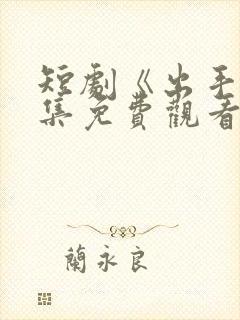 短劇《出手
集免費觀看
蘭永良